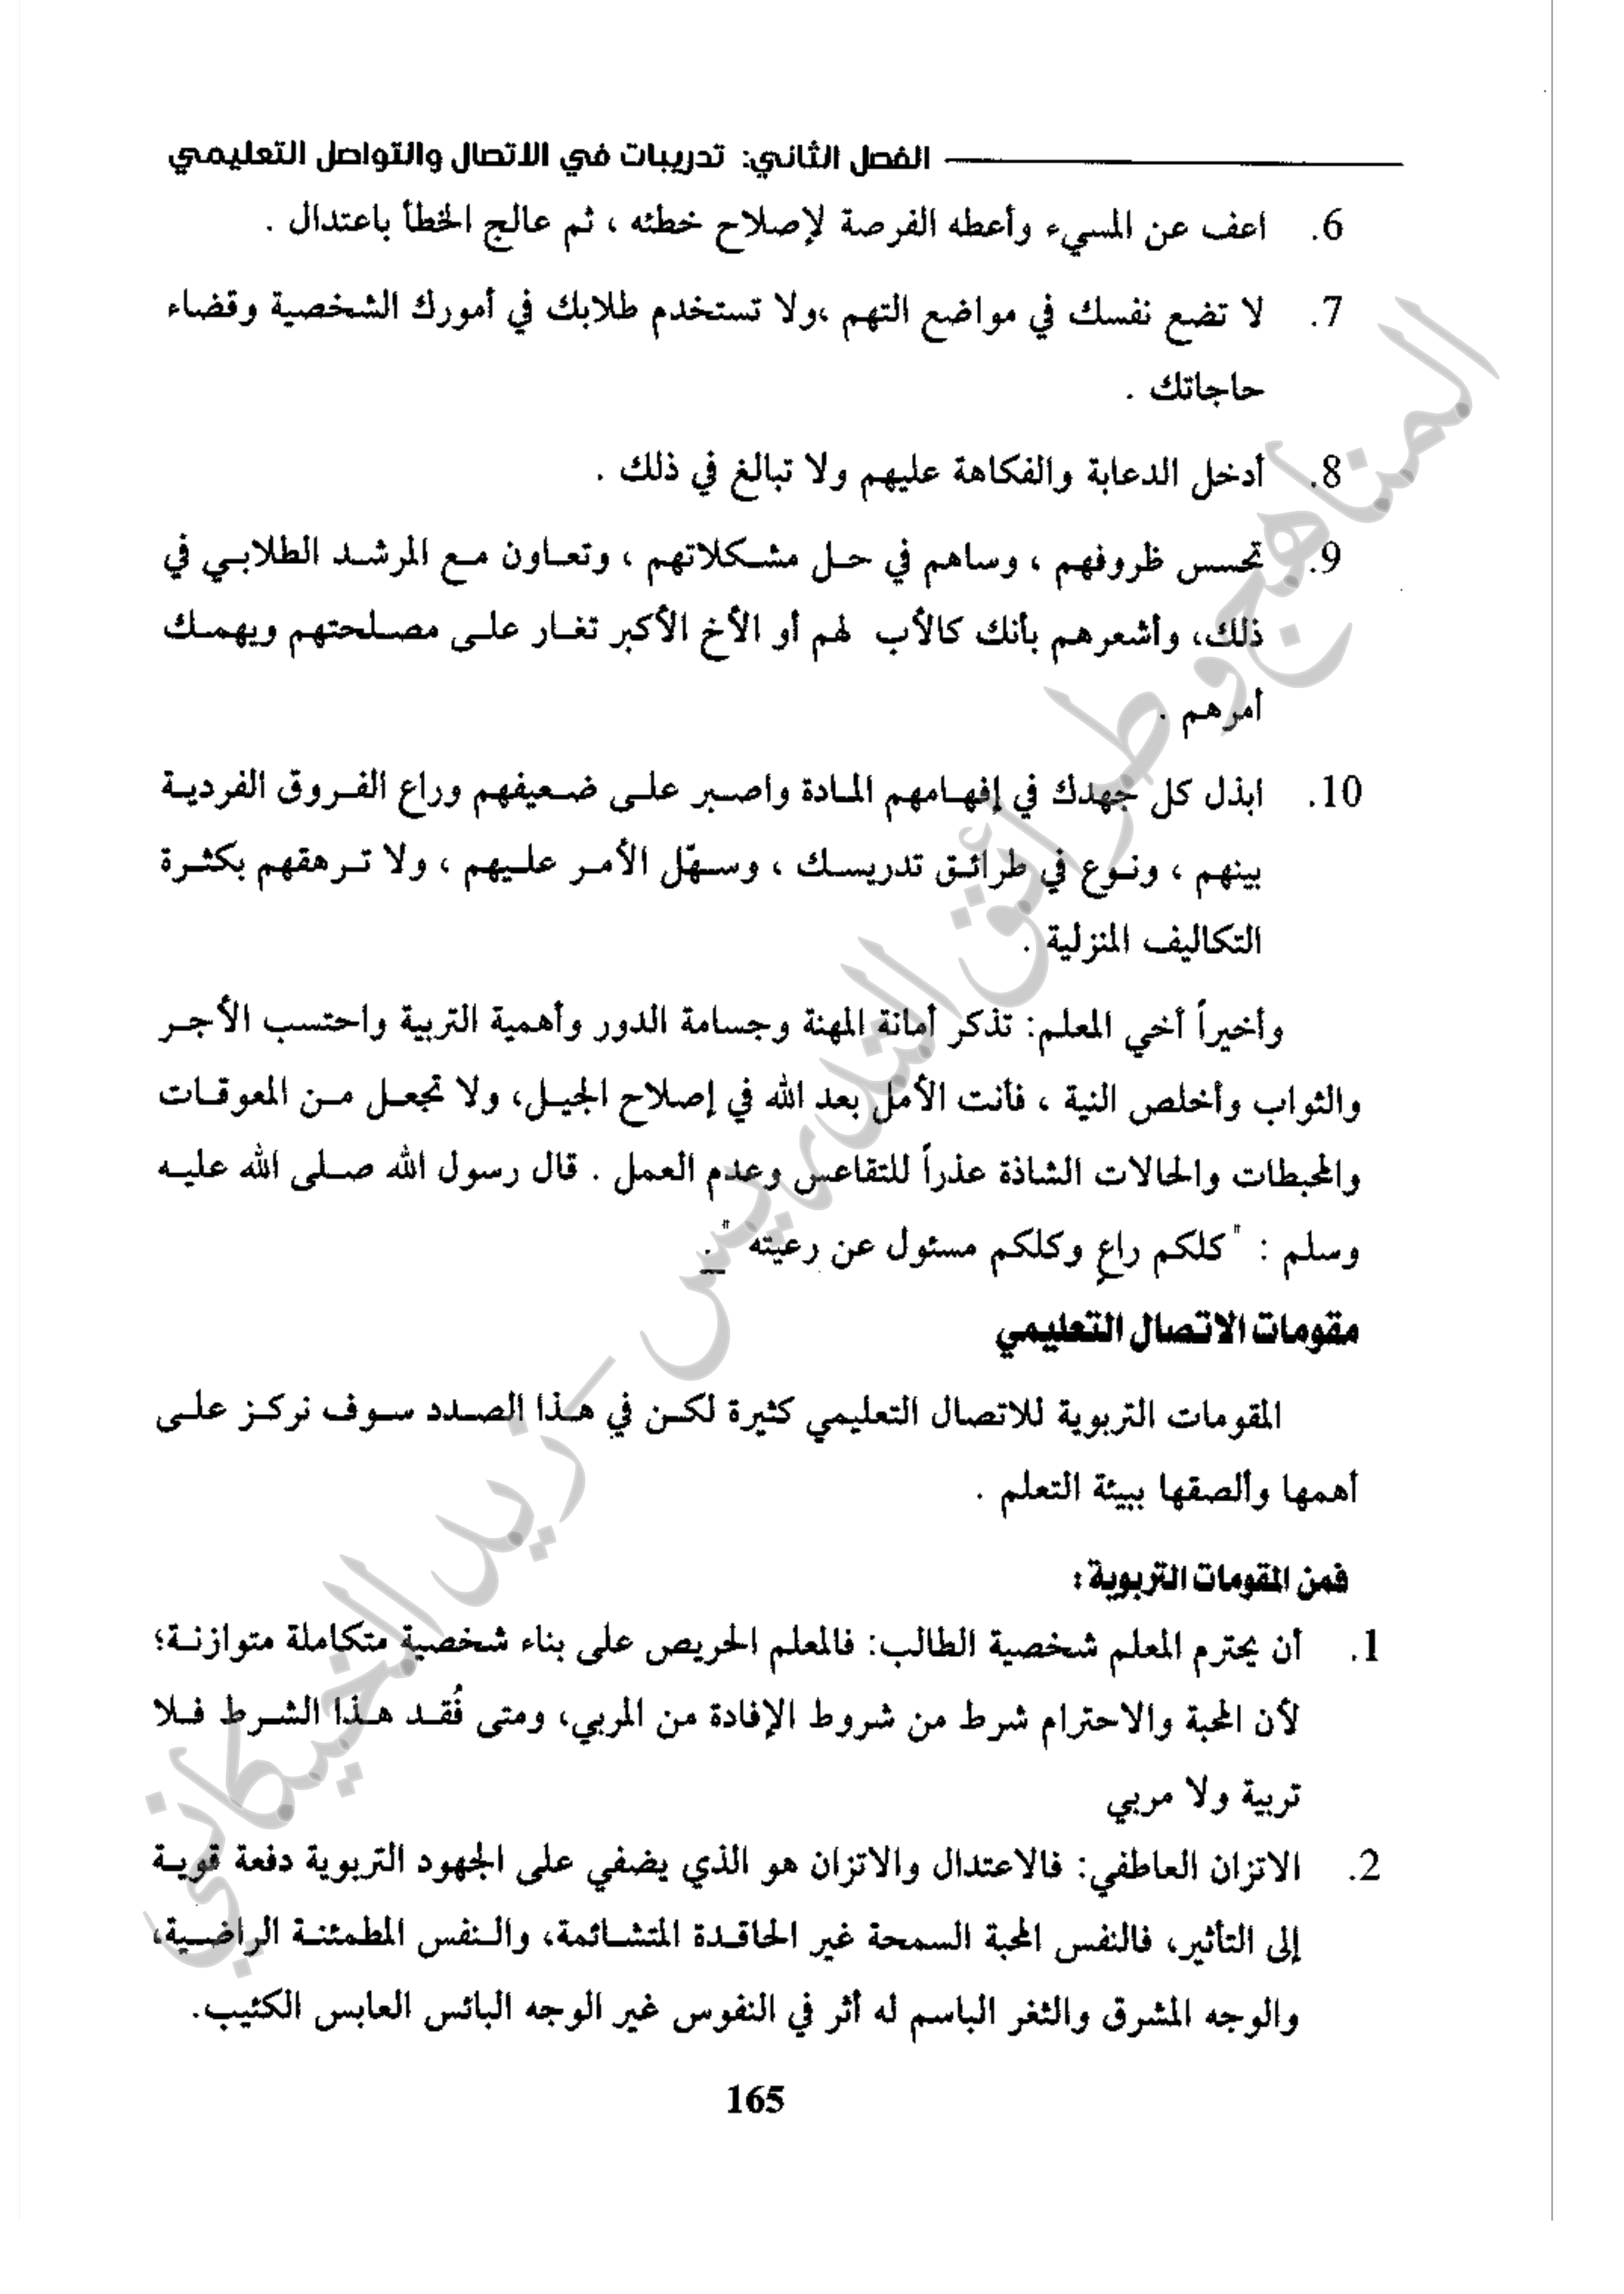 الفصل الثاني: تدريبات في الاتصال والتواصل التعليمي
6. اعف عن المسيء وأعطه الفرصة لإصلاح خطئه ، ثم عالج الخطأ باعتدال .
7. لا تضع نفسك في مواضع التهم ،ولا تستخدم طلابك في أمورك الشخصية وقضاء
حاجاتك .
8. أدخل الدعابة والفكاهة عليهم ولا تبالغ في ذلك .
9. تحسس ظروفهم ، وساهم في حل مشكلاتهم ، وتعاون مع المرشد الطلابي في
ذلك، وأشعرهم بأنك كالأب لهم أو الأخ الأكبر تغار على مصلحتهم ويهمك
أمرهم .
10. ابذل كل جهدك في إفهامهم المادة واصبر على ضعيفهم وراع الفروق الفردية
بينهم ، ونوع في طرائق تدريسك ، وسهّل الأمر عليهم ، ولا ترهقهم بكثرة
التكاليف المنزلية .
وأخيراً أخي المعلم: تذكر أمانة المهنة وجسامة الدور وأهمية التربية واحتسب الأجر
والثواب وأخلص النية ، فأنت الأمل بعد الله في إصلاح الجيل، ولا تجعل من المعوقات
والمحبطات والحالات الشاذة عذراً للتقاعس وعدم العمل . قال رسول الله صلى الله عليه
وسلم : " كلكم راعٍ وكلكم مسئول عن رعيته " .
مقومات الاتصال التعليمي
المقومات التربوية للاتصال التعليمي كثيرة لكن في هذا الصدد سوف نركز على
أهمها وألصقها ببيئة التعلم .
فمن المقومات التربوية :
1. أن يحترم المعلم شخصية الطالب: فالمعلم الحريص على بناء شخصية متكاملة متوازنة؛
لأن المحبة والاحترام شرط من شروط الإفادة من المربي، ومتى فُقد هذا الشرط فلا
تربية ولا مربي
2. الاتزان العاطفي: فالاعتدال والاتزان هو الذي يضفي على الجهود التربوية دفعة قوية
إلى التأثير، فالنفس المحبة السمحة غير الحاقدة المتشائمة، والنفس المطمئنة الراضية،
والوجه المشرق والثغر الباسم له أثر في النفوس غير الوجه البائس العابس الكئيب.
165
المناهج وطرائق التدريس - زيد الخيكاني